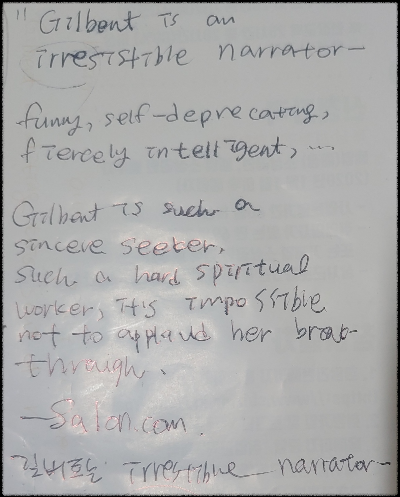 "Gilbert is an
irresistible narrator-
funny, self-deprecating,
fiercely intelligent, ...
Gilbert is such a
sincere seeker,
such a hard spiritual
worker, it's impossible
not to applaud her brea-
through.
-Salon.com.
길버트는 irrestible narrator-